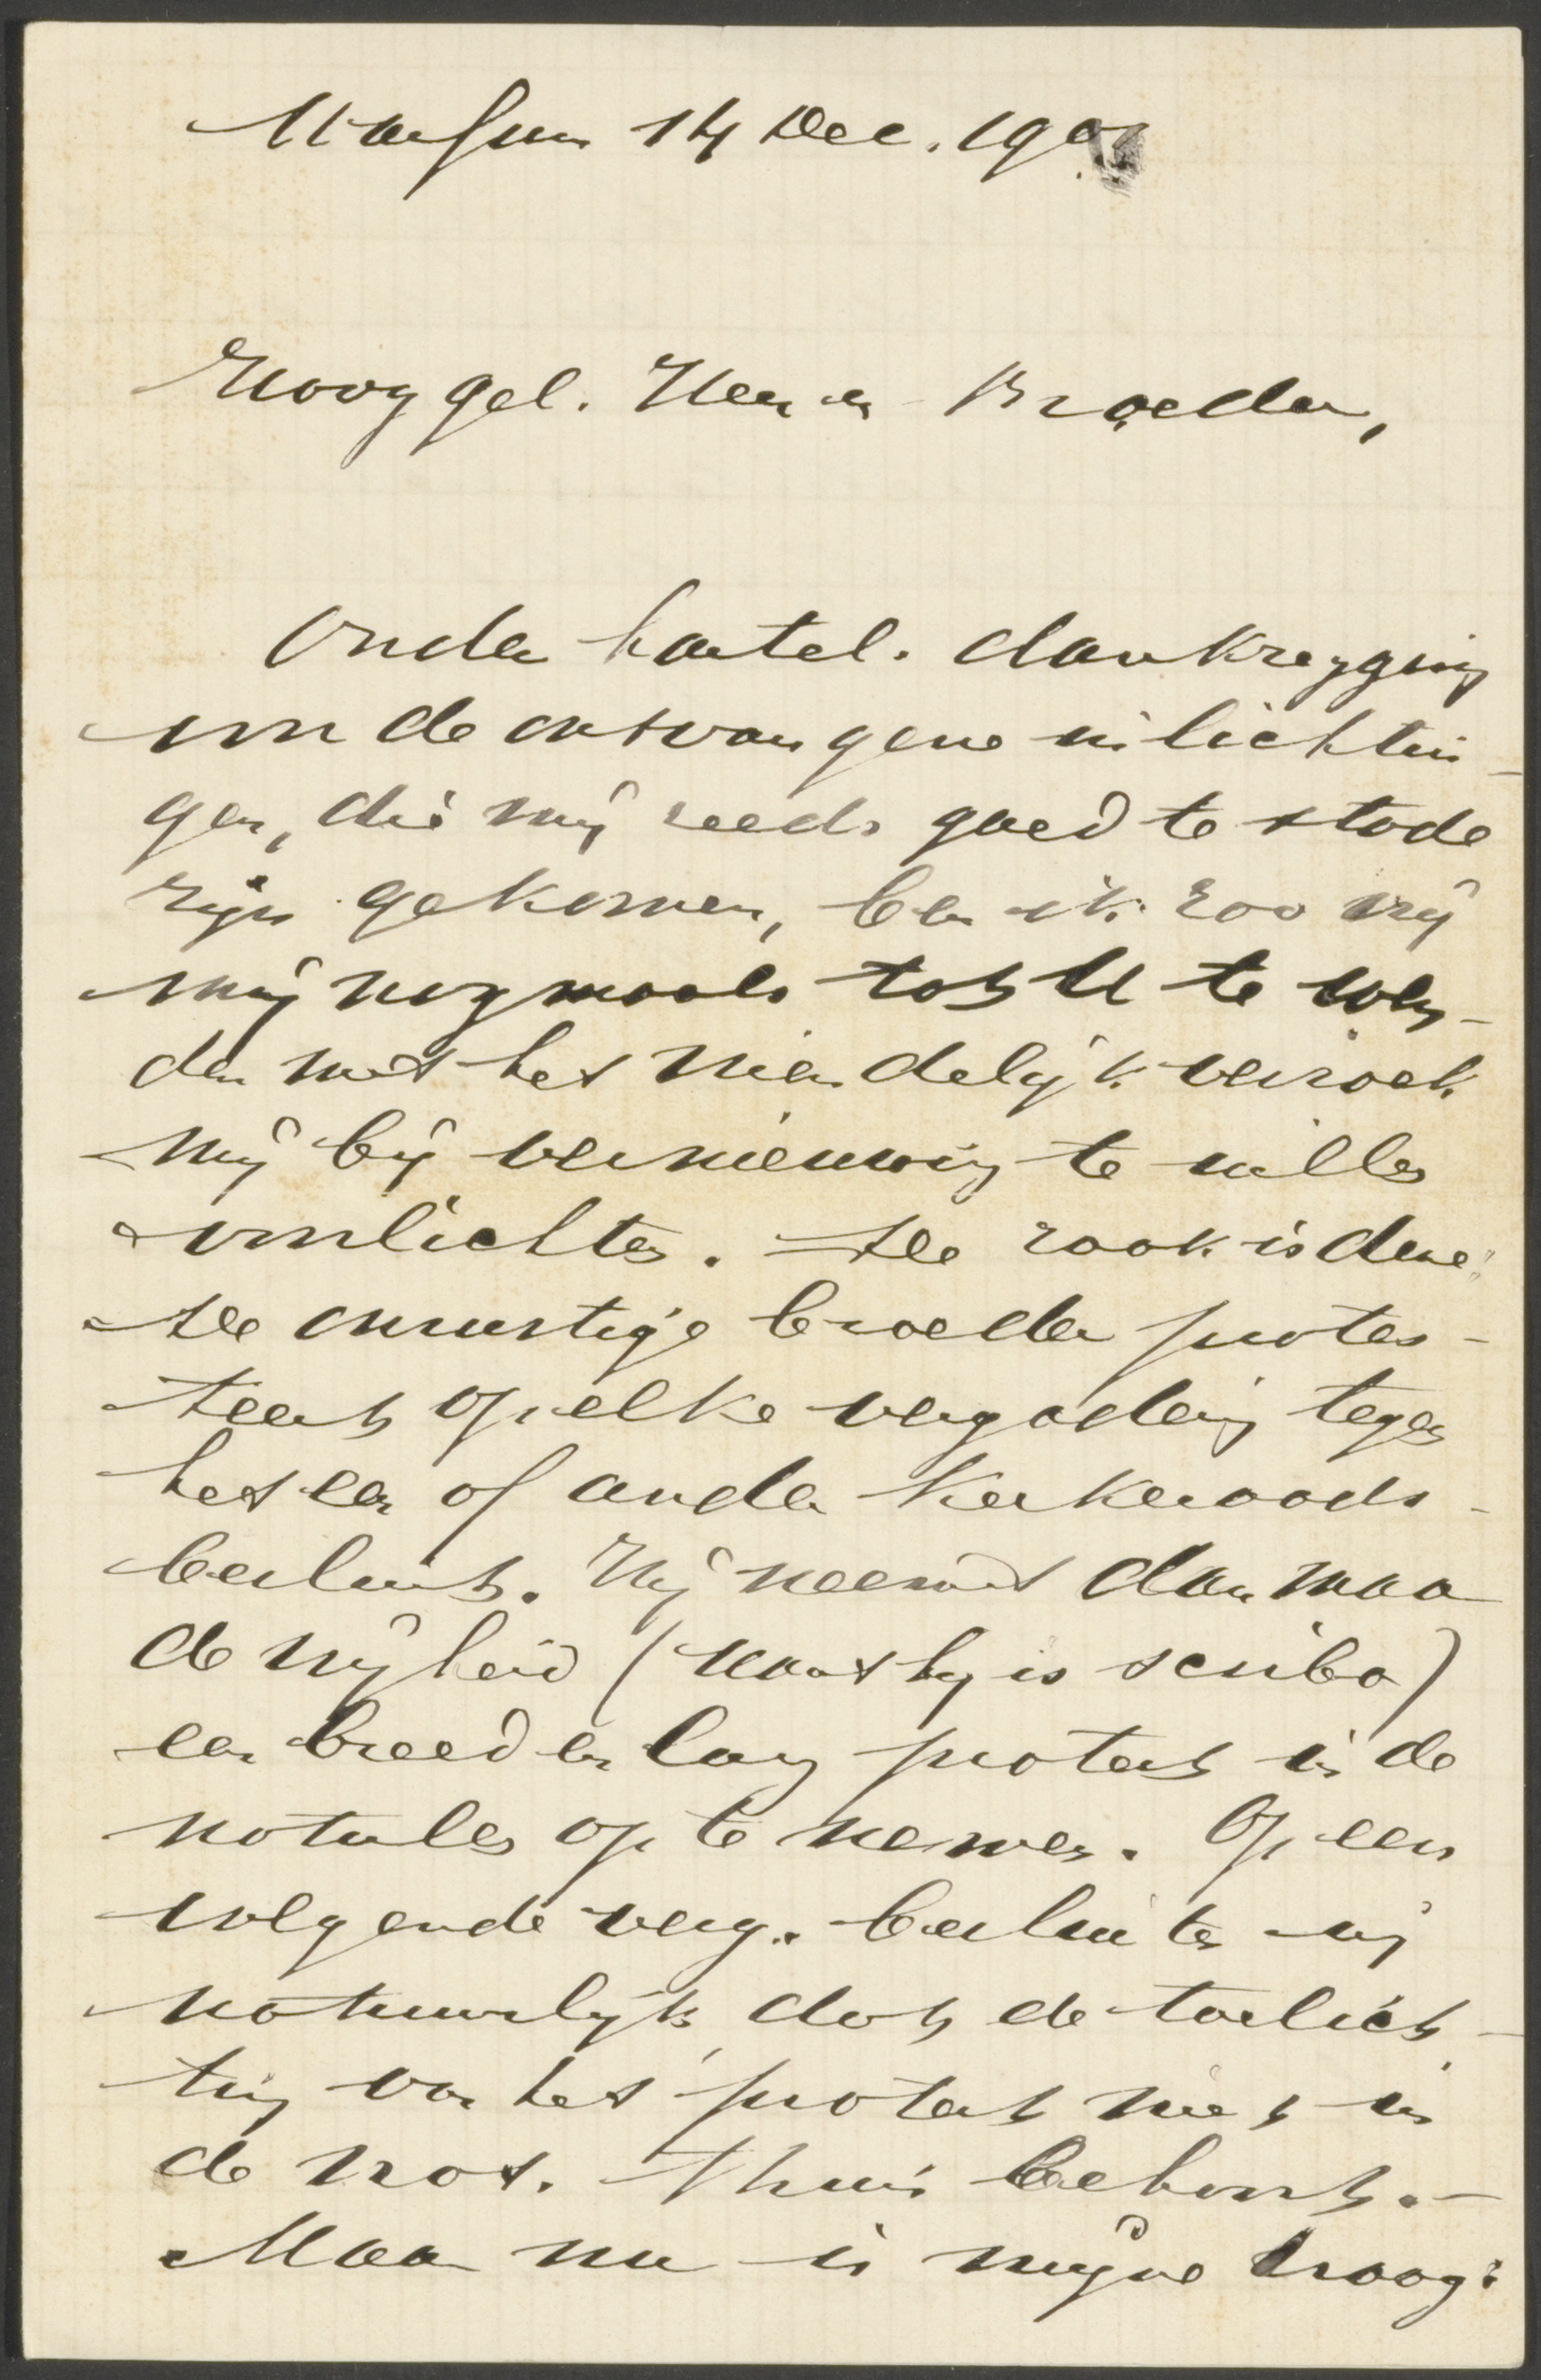 Marsum 14 Dec. 190
Hooggel. Heer en Broeder,
Onder hartel. dankzegging
voor de ontvangene inlichtin-
gen, die mij reeds goed te stade
zijn gekomen, ben ik zoo vrij
mij nogmaals tot U te wen-
den met het vriendelijk verzoek
mij bij vernieuwing te willen
voorlichten. De zaak is deze:
De onrustige broeder protes-
teert op elke vergadering tegen
het een of ander kerkeraads-
besluit. Hij neemt dan maar
de vrijheid (want hij is scriba)
een breed en lang protest in de
notulen op te nemen. Op een
volgende verg. besluiten wij
natuurlijk, dat de toelich-
ting van het protest niet in
de not. thuis behoort. -
Maar nu is mijne vraag: